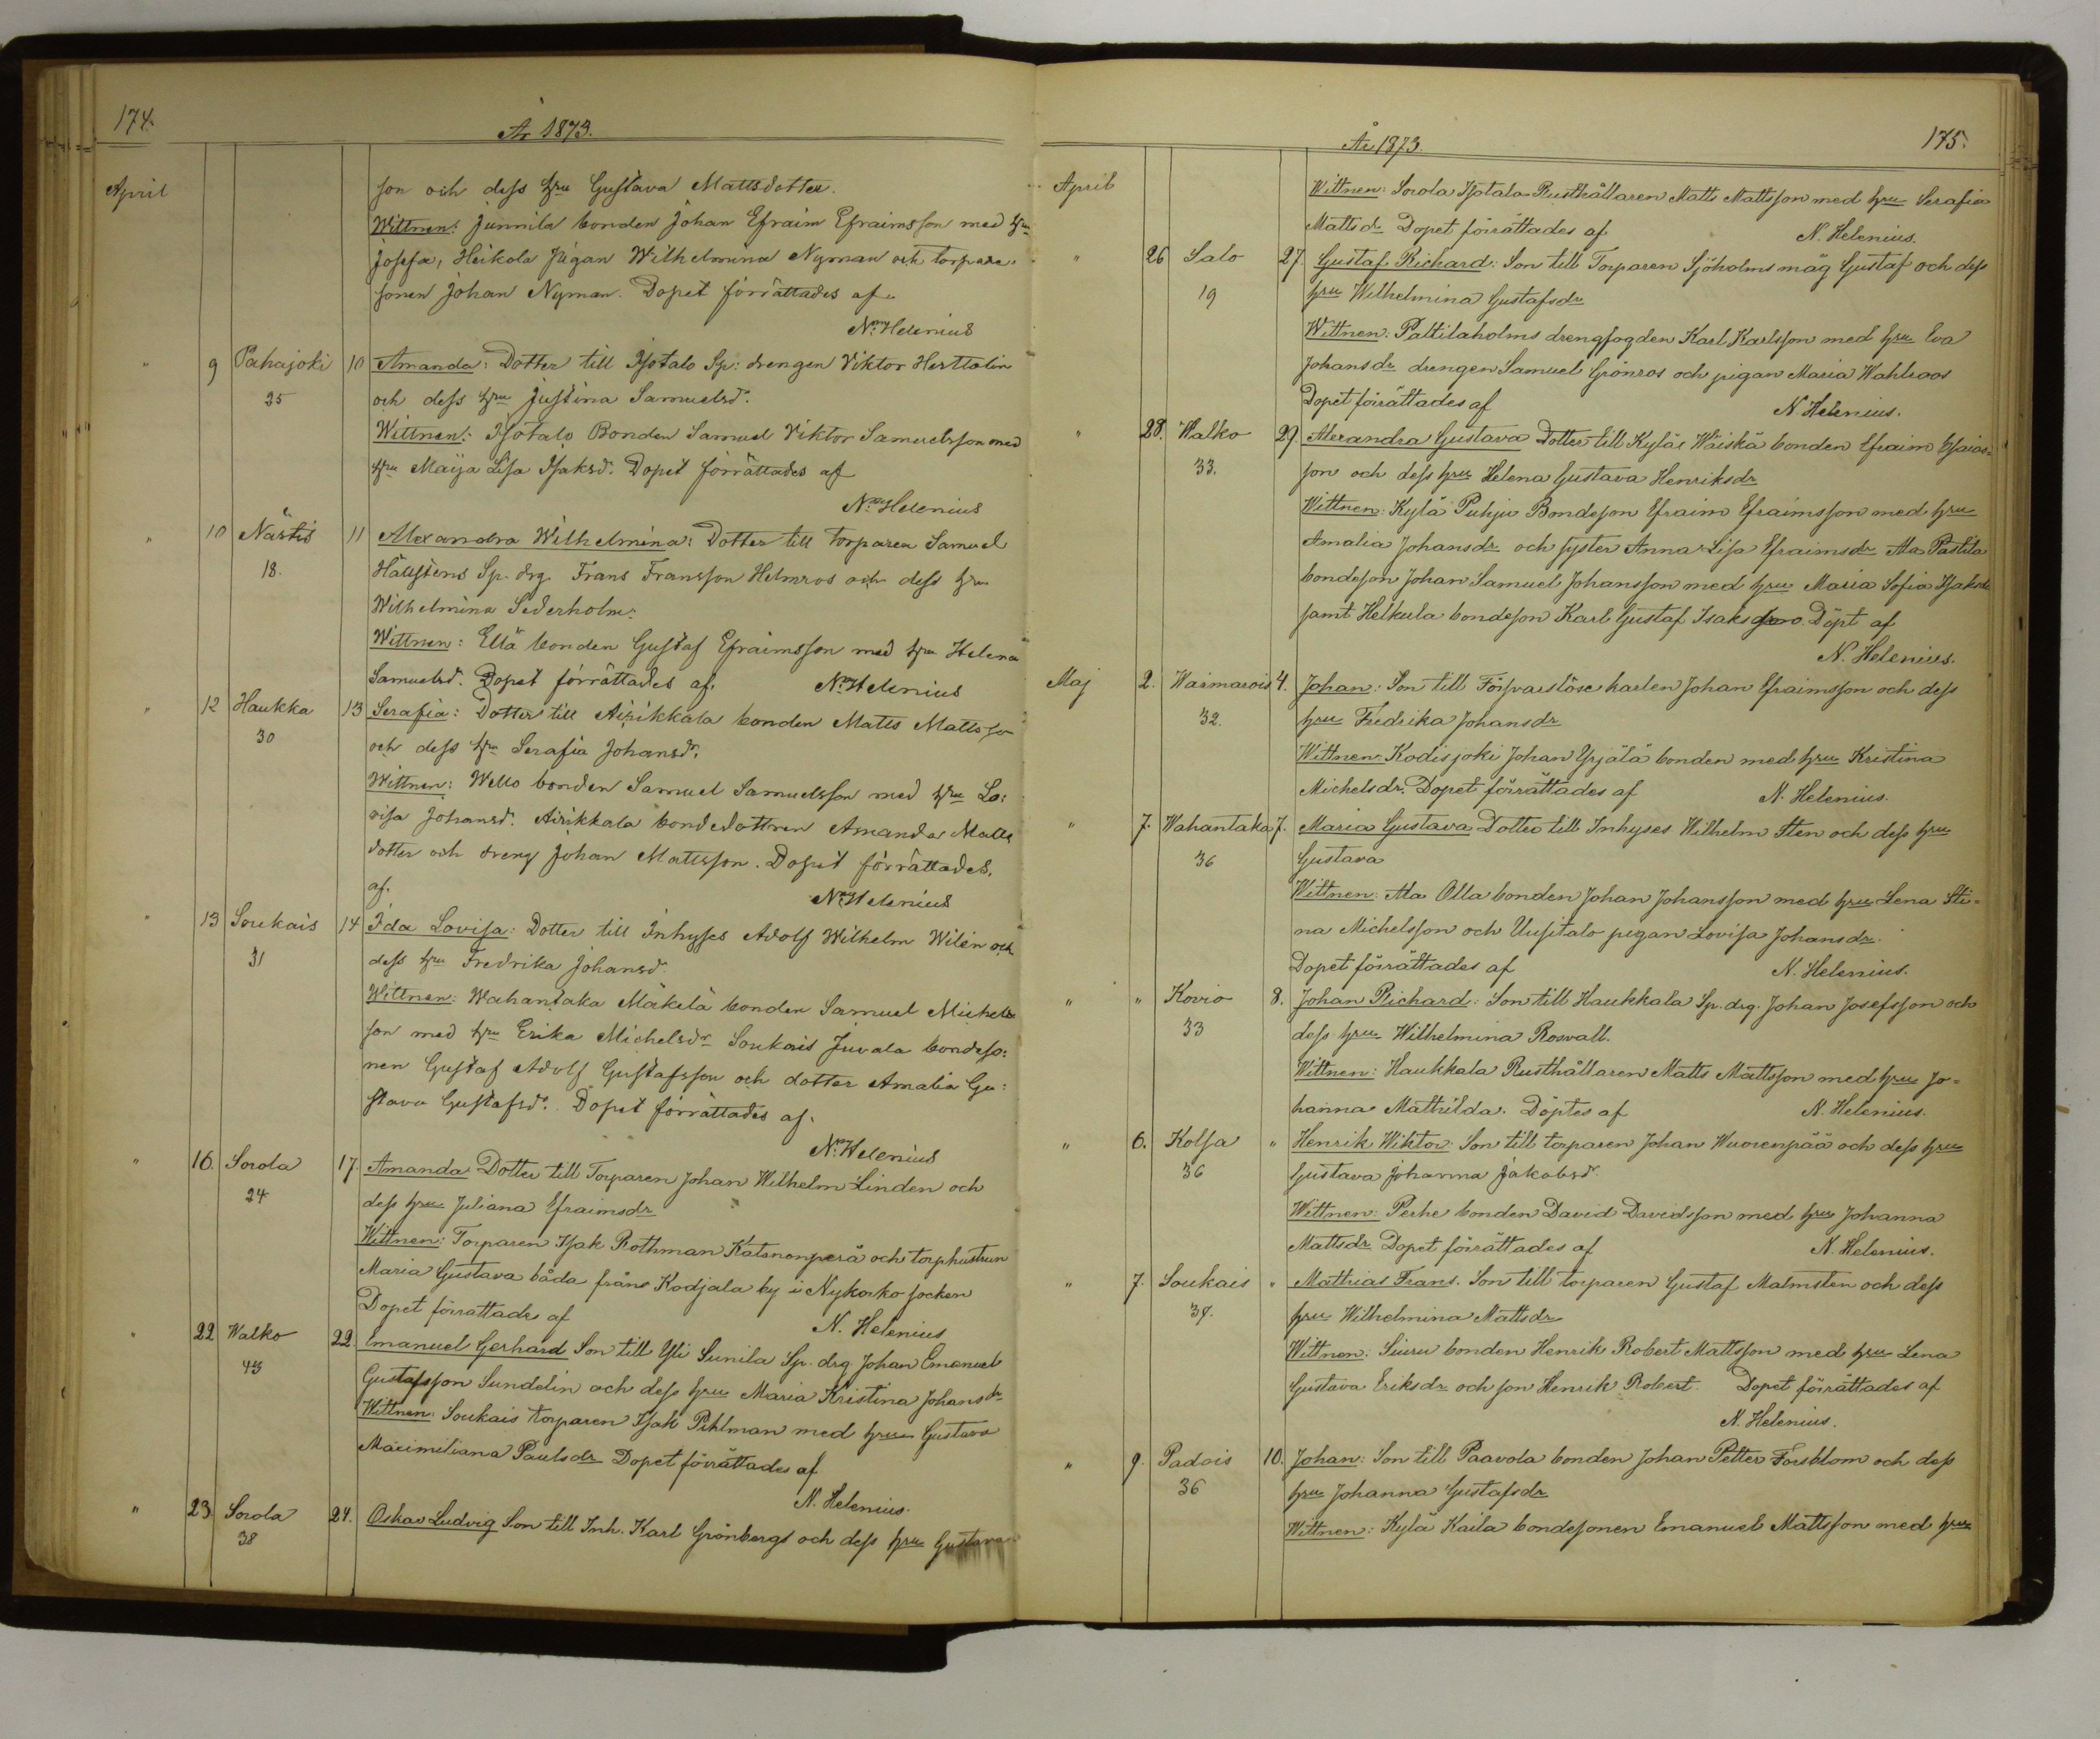 174.
År 1873.
April
son och dess hru Gustava Mattsdotter.
Wittnen: Junnila bonden Johan Efraim Efraimsson med hru
Josefa, Heikola pigan Wilhelmina Nyman och torpare-
sonen Johan Nyman. Dopet förrättades af.
N. Helenius
" 9 Pahajoki 10 Amanda: Dotter till Isotalo Sp: drengen Viktor Herttolin
25 och dess hru Justina Samuelsd.
Wittnen: Isotalo Bonden Samuel Viktor Samuelsson med
hru Maija Lisa Isaksd. Dopet förrättades af
N. Helenius
" 10 Nästis 11 Alexandra Wilhelmina: Dotter till torparen Samuel
18. Hällstens Sp. drg. Frans Fransson Helmros och dess hru
Wilhelmina Sederholm.
Wittnen: Ellä bonden Gustaf Efraimsson med hru Helena
Samuelsd. Dopet förrättades af. N. Helenius
" 12 Haukka 13 Serafia: Dotter till Airikkala bonden Matts Mattsso
30 och dess hru Serafia Johansdr.
Wittnen: Wello bonden Samuel Samuelsson med hru Lo:
visa Johansd. Airikkala bondedottren Amanda Matts
dotter och dreng Johan Mattsson. Dopet förrättades.
af. N. Helenius
" 13 Soukais 14 Ida Lovisa: Dotter till Inhyses Adolf Wilhelm Wilén och
31 dess hru Fredrika Johansd.
Wittnen: Wahantaka Mäkelä bonden Samuel Michels
son med hru Erika Michelsdr Soukais Juvala bondeso:
nen Gustaf Adolf Gustafsson och dotter Amalia Gu:
stava Gustafsdr. Dopet förrättades af.
N. Helenius
" 16. Sorola 17. Amanda Dotter till Torparen Johan Wilhelm Linden och
24 dess hru Juliana Efraimsdr
Wittnen: Torparen Isak Rothman Katsnonperä och torphustrun
Maria Gustava båda från Kodjala by i Nykorko socken
Dopet förrattades af N. Helenius
" 22 Walko 22. Emanuel Gerhard Son till Yli Sunila Sp. drg Johan Emanuel
43 Gustafsson Sundelin och dess hru Maria Kristina Johansdr
Wittnen: Soukais torparen Isak Pihlman med hru Gustava
Maximiliana Paulsdr Dopet förrättades af
N. Helenius.
" 23. Sorola 24. Oskar Ludvig Son till Inh. Karl Grönbergs och dess hru Gustava
38
175.
År 1873.
April
Wittnen: Sorola Isotalo Rusthållaren Matts Mattsson med hru Serafia
Mattsdr Dopet förrättades af N. Helenius.
" 26 Salo 27. Gustaf Richard: Son till Torparen Sjöholms måg Gustaf och dess
19 hru Wilhelmina Gustafsdr
Wittnen: Palttilaholms drengfogden Karl Karlsson med hru Eva
Johansdr drengen Samuel Grönros och pigan Maria Wahlroos
Dopet förrättades af N. Helenius.
" 28. Walko 29. Alexandra Gustava Dotter till Kylä Wäiskä bonden Efraim Esaias-
33. son och dess hru Helena Gustava Henriksdr
Wittnen: Kylä Puhju Bondeson Efraim Efraimsson med hru
Amalia Johansdr och syster Anna Lisa Efraimsdr Ala Pastila
bondeson Johan Samuel Johansson med hru Maria Sofia Isaksdr
samt Helkula bondeson Karl Gustaf Isaksson Döpt af
N. Helenius.
Maj 2. Waimarois 4. Johan: Son till Försvarslöse karlen Johan Efraimsson och dess
32. hru Fredrika Johansdr
Wittnen: Kodisjoki Johan Yrjälä bonden med hru Kristina
Michelsdr. Dopet förrättades af N. Helenius.
" 7. Wahantaka 7. Maria Gustava Dotter till Inhyses Wilhelm Sten och dess hru
36 Gustava
Wittnen: Ala Olla bonden Johan Johansson med hru Lena Sti-
na Michelsson och Uusitalo pigan Lovisa Johansdr.
Dopet förrättades af N. Helenius.
" " Kovio 8. Johan Richard: Son till Haukkala Sp. drg. Johan Josefsson och
33 dess hru Wilhelmina Rosvall.
Wittnen: Haukkala Rusthållaren Matts Mattsson med hru Jo-
hanna Mathilda. Döptes af N. Helenius.
" 6. Kolsa " Henrik Wiktor: Son till torparen Johan Wuorenpää och dess hru
36 Gustava Johanna Jakobsd.
Wittnen: Perhe bonden David Davidsson med hru Johanna
Mattsdr Dopet förrättades af N. Helenius.
" 7. Soukais " Mathias Frans. Son till torparen Gustaf Malmsten och dess
37. hru Wilhelmina Mattsdr
Wittnen: Siuru bonden Henrik Robert Mattsson med hru Lena
Gustava Eriksdr och son Henrik Robert. Dopet förrättades af
N. Helenius.
" 9. Padois 10. Johan: Son till Paavola bonden Johan Petter Forsblom och dess
36 hru Johanna Gustafsdr
Wittnen: Kylä Kaila bondesonen Emanuel Mattsson med hru